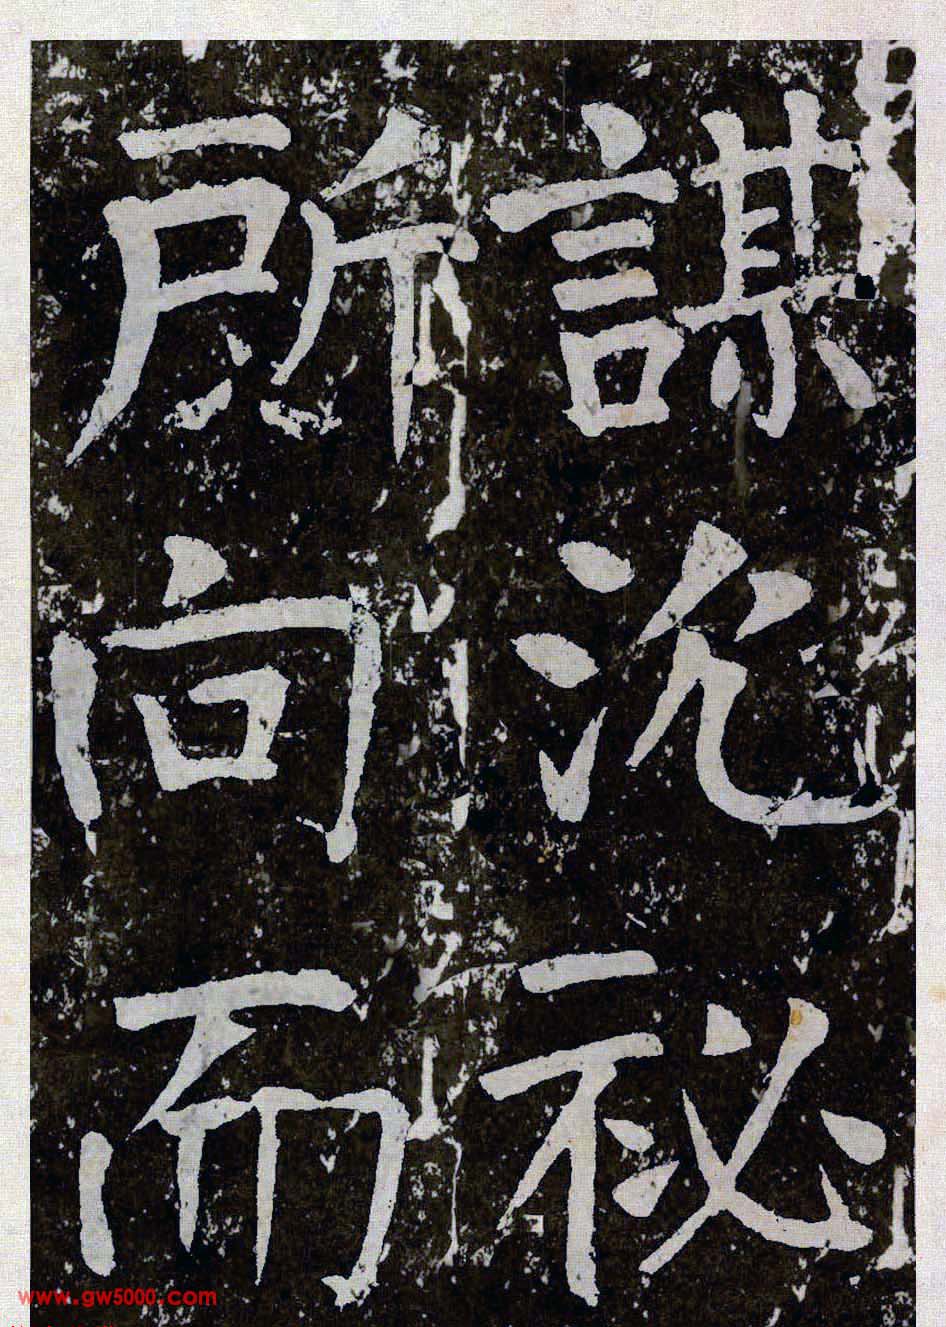 謀沉秘
所向而
www.gw5000.com